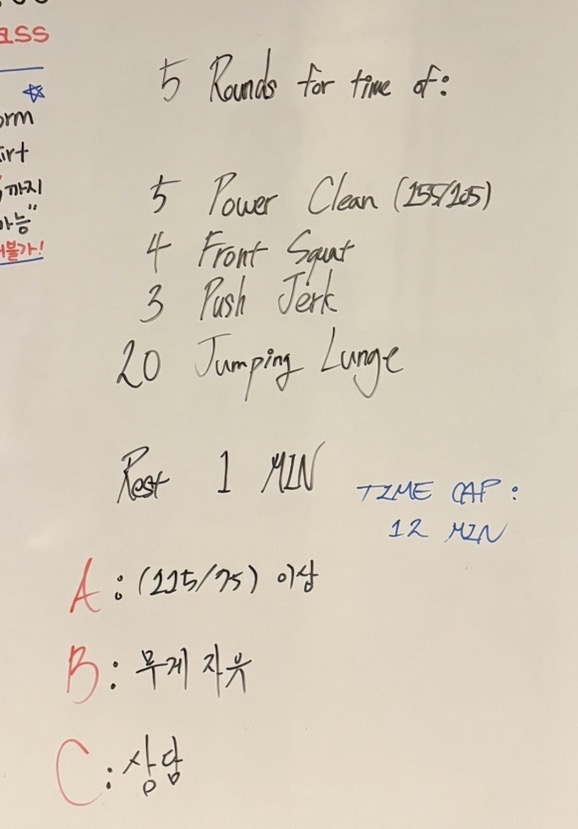 ASS
orm
irt
까지
가능"
불가!
5 Rounds for time of:
5 Power Clean (155/105)
4 Front Squat
3 Push Jerk
20 Jumping Lunge
Rest 1 MIN
TIME CAP:
12 MIN
A: (115/75) 이상
B: 무게 자유
C: 상담